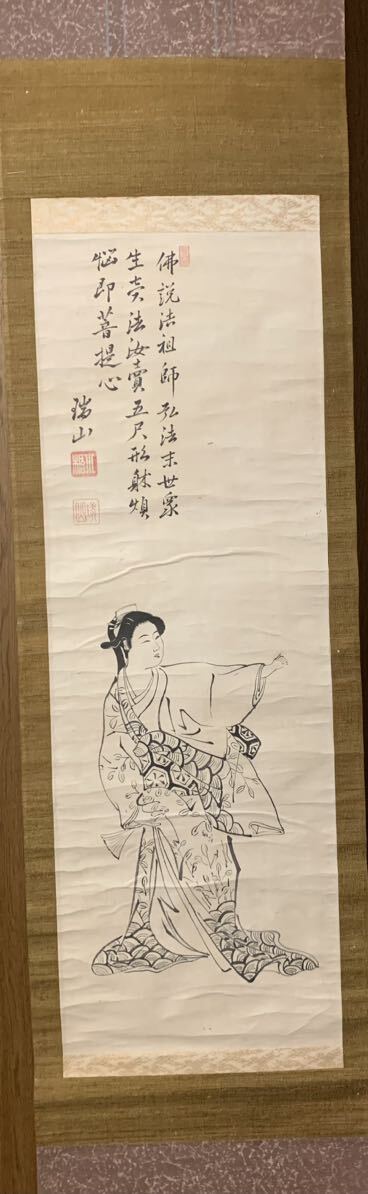 佛説法祖師弘法末世衆
生売法汝賣五尺形躰煩
悩即菩提心
瑞山